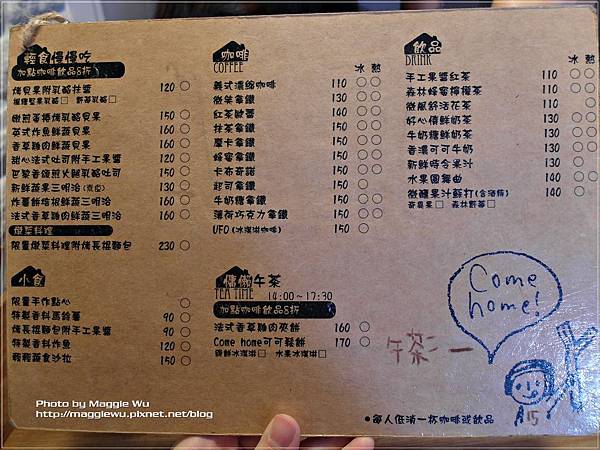 輕食慢慢吃
加點咖啡飲品8折
烤貝果附乳酪抹醬 120 ○
微煎蛋燒烤乳酪貝果 150 ○
英式炸魚鮮蔬貝果 160 ○
香草雞肉鮮蔬貝果 160 ○
甜心法式吐司附手工果醬 120 ○
巴黎香頌煎火腿乳酪吐司 150 ○
新鮮蔬果三明治 130 ○
炸薯餅烤根鮮蔬三明治 160 ○
法式香草雞肉鮮蔬三明治 160 ○
燉菜料理
限量燉菜料理附烤長棍麵包 230 ○
小食
限量手作點心 ○
特製香料馬鈴薯 90 ○
烤長棍麵包附手工果醬 90 ○
特製香料炸魚 120 ○
輕輕蔬食沙拉 150 ○
咖啡
COFFEE
冰 熱
義式濃縮咖啡 110 ○ ○
微笑拿鐵 130 ○ ○
紅茶歐蕾 130 ○ ○
抹茶拿鐵 130 ○ ○
摩卡拿鐵 130 ○ ○
蜂蜜拿鐵 130 ○ ○
卡布奇諾 130 ○ ○
起司拿鐵 150 ○
牛奶糖拿鐵 150 ○ ○
薄荷巧克力拿鐵 150 ○ ○
UFO (冰淇淋咖啡) 150 ○
慵懶午茶
TEA TIME 14:00~17:30
加點咖啡飲品8折
法式香草雞肉夾餅 160 ○
Come home可可鬆餅 170 ○
香鮮冰淇淋□ 水果冰淇淋□
飲品
DRINK
冰 熱
手工果醬紅茶 110 ○ ○
森林蜂蜜檸檬茶 110 ○ ○
微風舒活花茶 110 ○
好心情鮮奶茶 130 ○ ○
牛奶糖鮮奶茶 130 ○ ○
香濃可可牛奶 130 ○ ○
新鮮時令果汁 130 ○
水果圓舞曲 140 ○ ○
微醺果汁蘇打(含酒精) 140 ○
奇異果□ 森林野莓□
Come
home!
午茶
15
●每人低消一杯咖啡或飲品
Photo by Maggie Wu
http://maggiewu.pixnet.net/blog